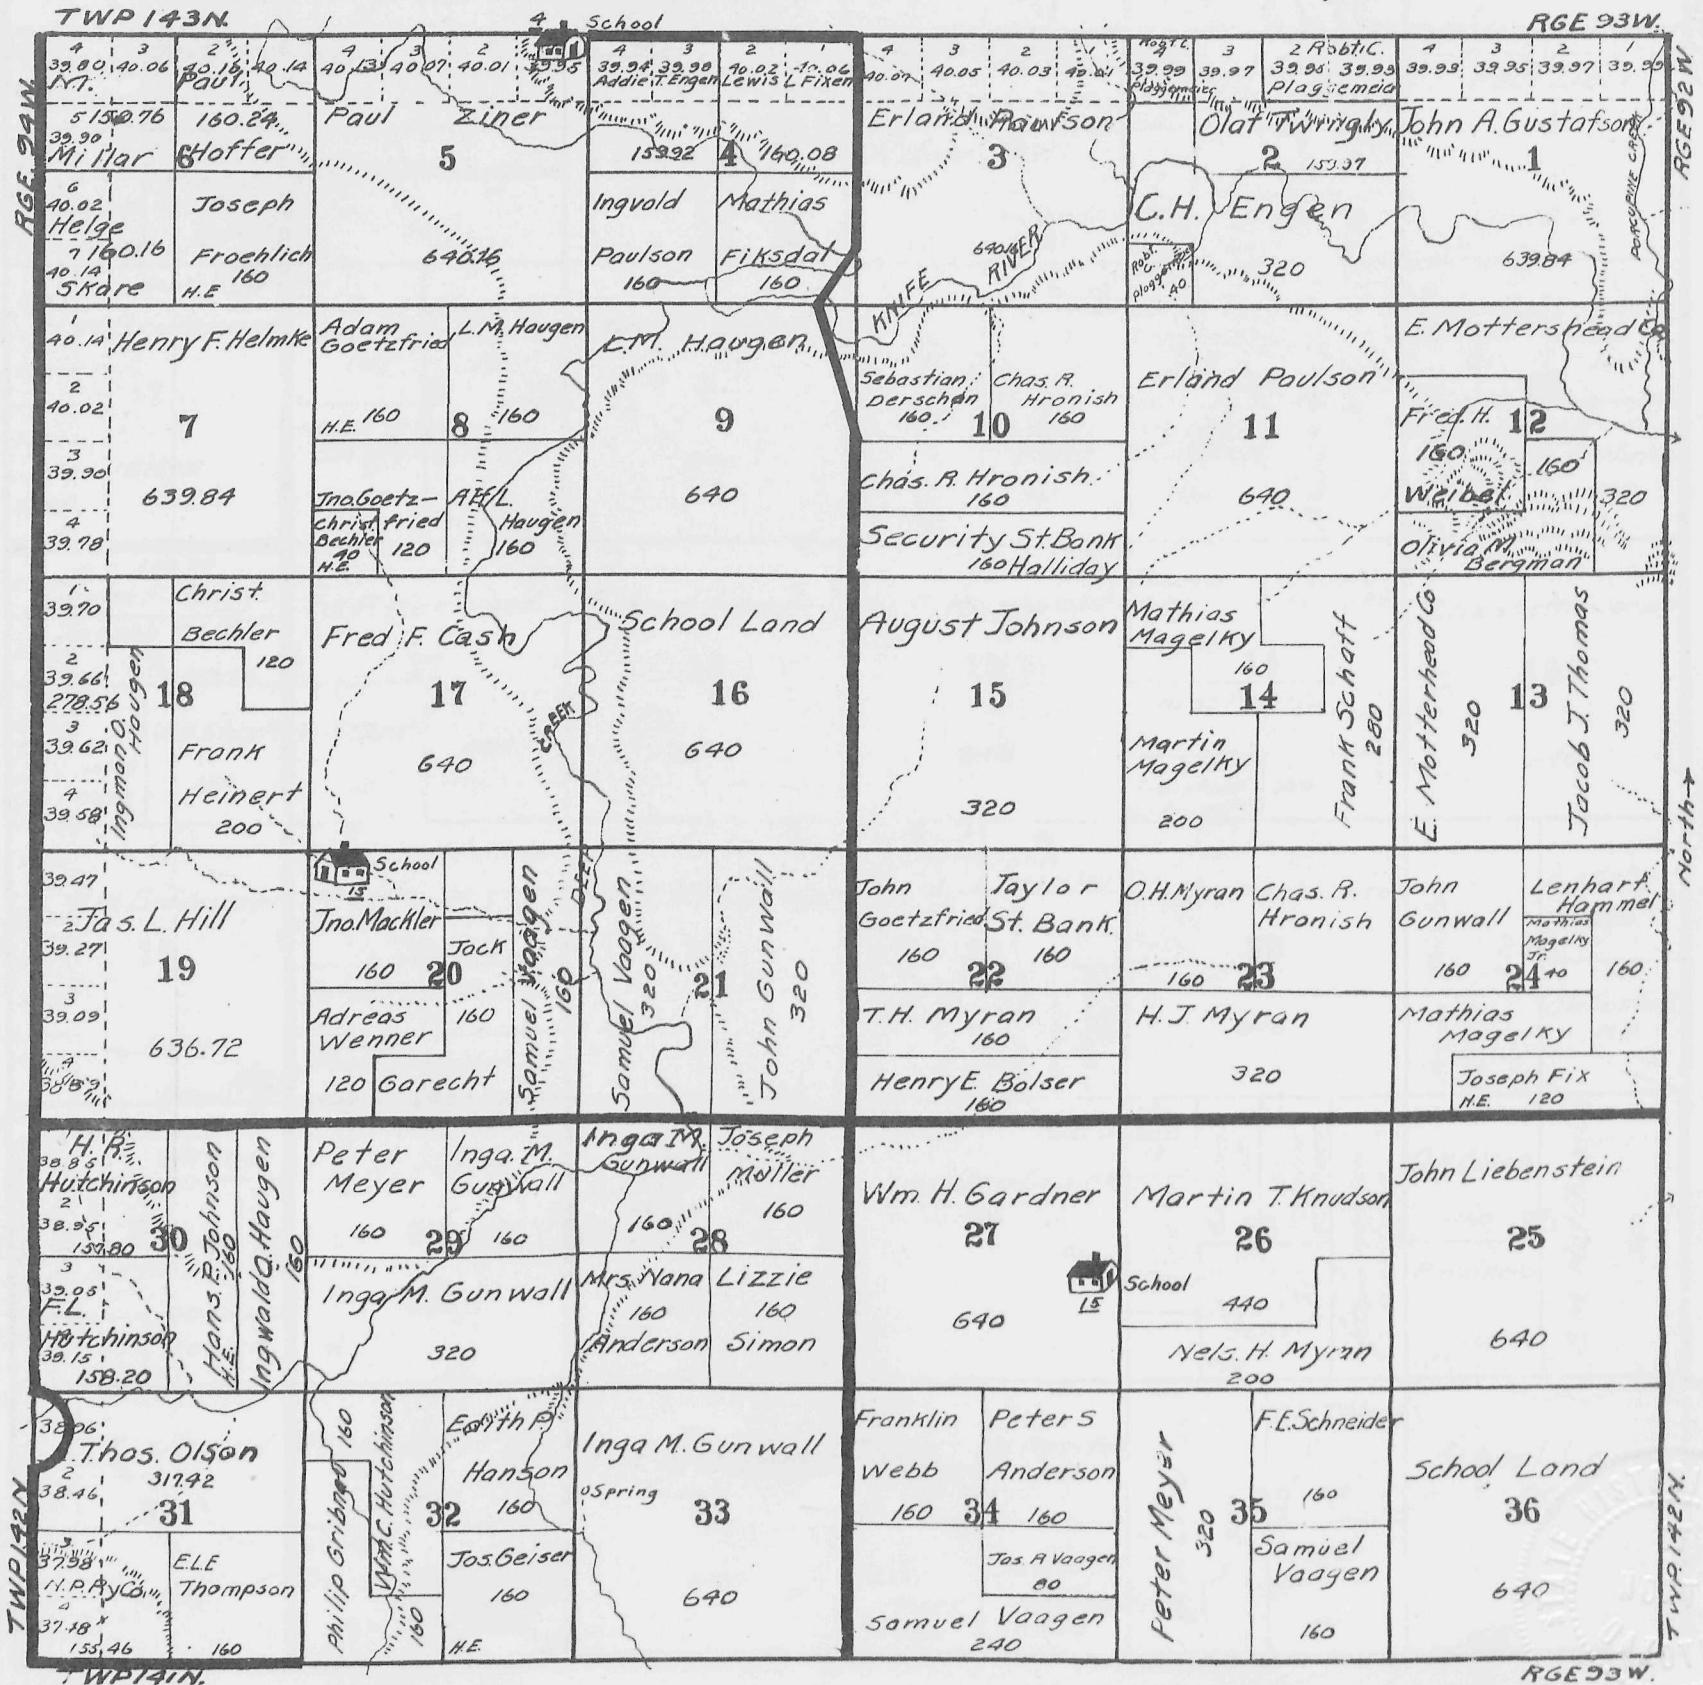 TWP 143N.
4 School
RGE 93W.
RGE. 94W.
RGE 92W
4 3 2
39.80 40.06 40.16 40.14
M. Paul
5 150.76 160.24
39.90
Millar 6 Hoffer
6
40.02
Helge
7 160.16
40.14
Skare
Joseph
Froehlich
H.E 160
4 3 2
40.13 40.07 40.01 39.95
Paul Ziner
5
640.16
4 3 2 1
39.94 39.98 40.02 40.06
Addie T. Engen Lewis L Fixen
159.92 4 160.08
Ingvold
Paulson
160
Mathias
Fiksdal
160
4 3 2 1
40.07 40.05 40.03 40.01
Erland Paulson
3
640.16
KNIFE RIVER
Robt. C. 3 2 Robt. C.
39.99 39.97 39.95 39.93
Plaggemeier Plaggemeia
Olaf Twringly
2 159.97
C.H. Engen
320
Robt.
C
Plagge
40
4 3 2 1
39.93 39.95 39.97 39.99
John A. Gustafson
1
639.84
PORCUPINE CREEK
1
40.14 Henry F. Helmke
2
40.02
7
3
39.90
639.84
4
39.78
Adam
Goetzfried
H.E. 160
L.M. Haugen
8 160
Jno. Goetz-
fried
120
Christ
Bechler
40
H.E.
Alf L.
Haugen
160
L.M. Haugen
9
640
Sebastian
Derschan
160
Chas. R.
Hronish
160
10
Chas. R. Hronish
160
Security St. Bank
160 Halliday
Erland Paulson
11
640
E. Mottershead Co.
Fred. H. 12
160
Weibel
160
320
Olivia M
Bergman
1
39.70
2
39.66
278.56 18
3
39.62
4
39.58
Ingman O. Haugen
Christ.
Bechler
120
Frank
Heinert
200
Fred F. Cash
17
640
CREEK
School Land
16
640
August Johnson
15
320
Mathias
Magelky
160
14
Martin
Magelky
200
Frank Schaff
280
E. Motterhead Co
320
13
Jacob J. Thomas
320
North→
39.47
Jas. L. Hill
2
39.27
19
3
39.09
636.72
4
School
15
Jno. Mackler
160 20
Jack
160
Garecht
Adreas
Wenner
120
Samuel Vaagen
160
DEEP
Samuel Vaagen
320
21
John Gunwall
320
John
Goetzfried
160
Taylor
St. Bank
160
22
T.H. Myran
160
Henry E. Bolser
160
O.H. Myran
160
Chas. R.
Hronish
23
H.J. Myran
320
John
Gunwall
160
Lenhart
Hammel
160
Mathias
Magelky
Jr.
24 40
Mathias
Magelky
Joseph Fix
H.E. 120
H. R.
38.85
Hutchinson
2
38.95
157.80 30
3
39.05
F.L.
Hutchinson
39.15
158.20
Hans. P. Johnson
H.E. 160
Ingwald O. Haugen
160
Peter
Meyer
160
Inga. M.
Gunwall
29 160
Inga M. Gunwall
320
Inga M.
Gunwall
160
Joseph
Muller
160
28
Mrs. Nana
160
Anderson
Lizzie
160
Simon
Wm. H. Gardner
27
640
School
15
Martin T. Knudson
26
440
Nels. H. Myran
200
John Liebenstein
25
640
38.06
Thos. Olson
2 317.42
38.46
31
3
37.98
N.P. Ry Co.
4
155.46
E.L.E
Thompson
160
Philip Gribnau 160
Wm. C. Hutchinson
160
Edith P.
Hanson
32 160
Jos. Geiser
160
H.E.
Inga M. Gunwall
Spring
33
640
Franklin
Webb
160
34
Peter S
Anderson
160
Jos. A Vaagen
80
Samuel Vaagen
240
Peter Meyer
320
35
F.E. Schneider
160
Samuel
Vaagen
160
School Land
36
640
TWP 142N
TWP 142 N.
TWP 141N.
RGE 93W.